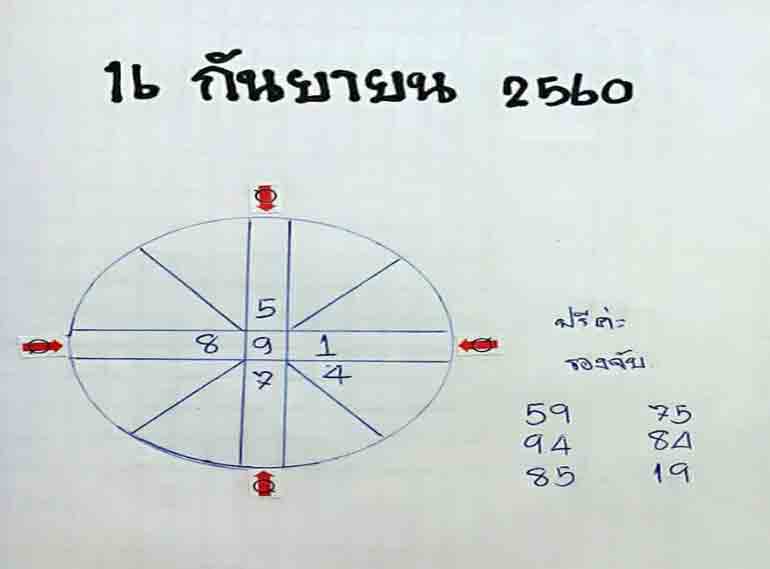 16 กันยายน 2560
5
8 9 1
7 4
ฟรีค่ะ
ลองจับ
59 75
94 84
85 19